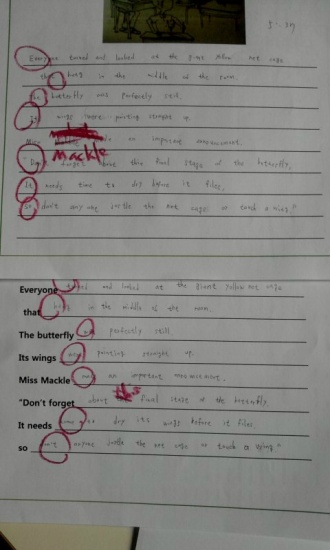 Everyone turned and looked at the giant yellow net cage
that hung in the middle of the room.
The butterfly was perfectly still.
Its wings were pointing straight up.
Miss Mackle made an important announcement.
"Don't forget about this final stage of the butterfly.
It needs time to dry before it flies,
so don't anyone jostle the net cage or touch a wing."
Everyone turned and looked at the giant yellow net cage
that hung in the middle of the room.
The butterfly was perfectly still.
Its wings were pointing straight up.
Miss Mackle an important announcement.
"Don't forget about this final stage of the butterfly.
It needs time to dry its wings before it flies.
so don't anyone jostle the net cage or touch a wing"